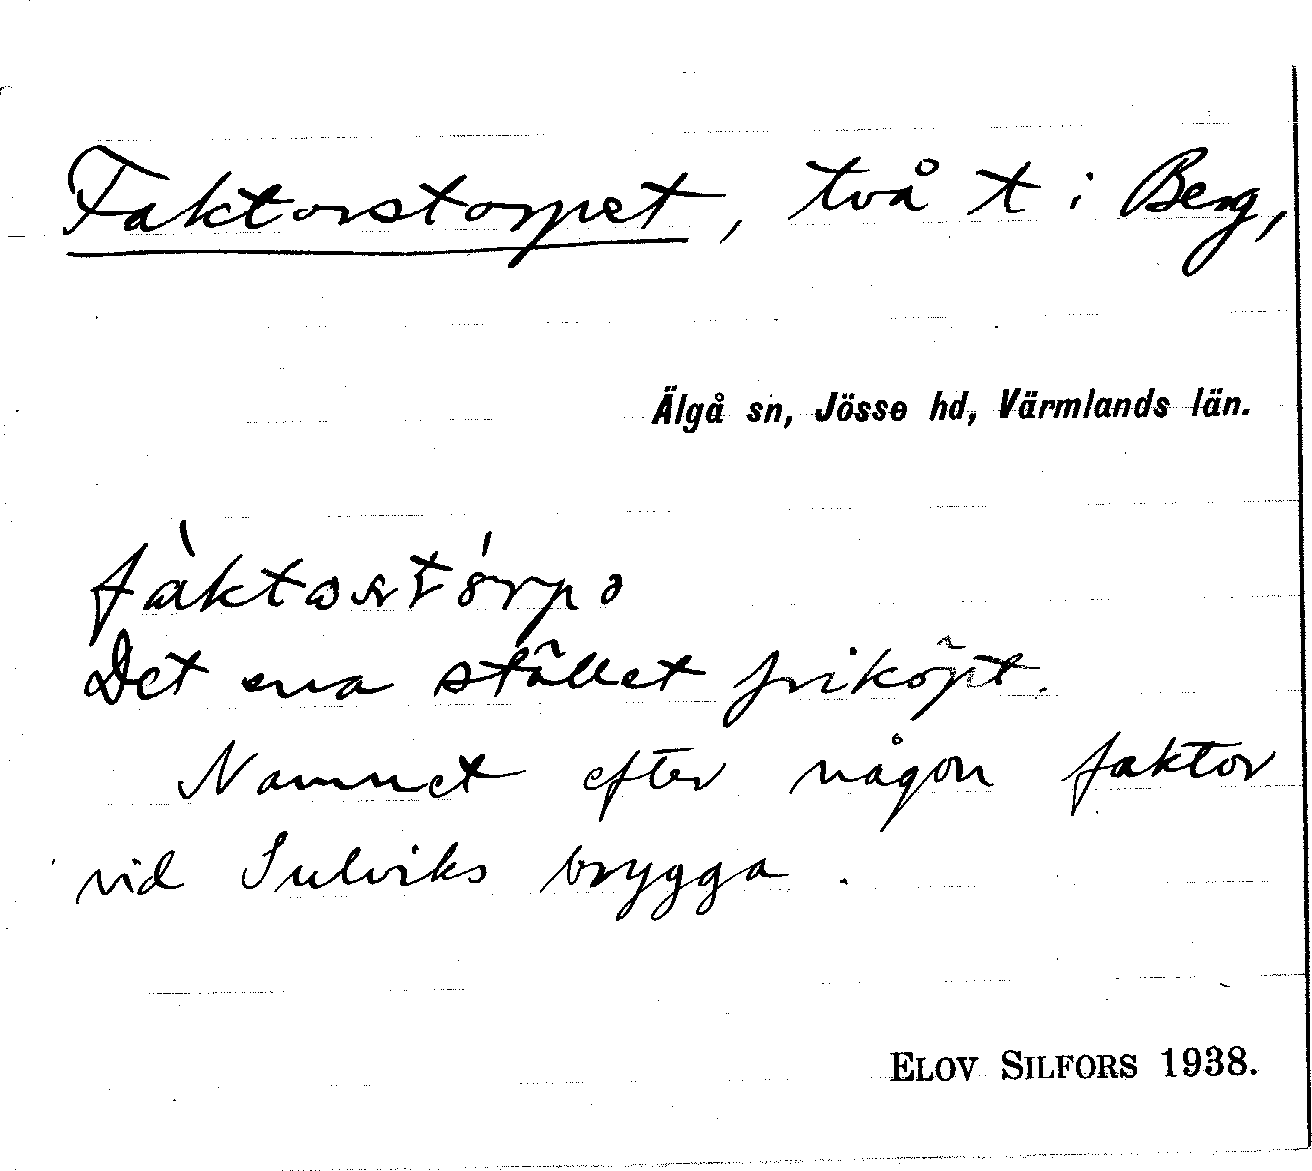 Faktorstorpet, två t i Berg,
Älgå sn, Jösse hd, Värmlands län.
Det ena stället friköpt.
Namnet efter någon faktor
vid Sulviks brygga.
ELOV SILFORS 1938.